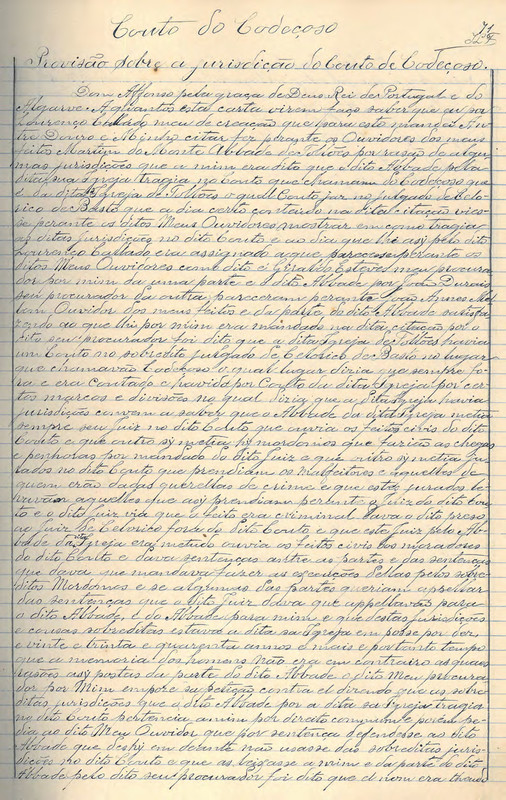 Couto do Codeçoso
71
Provisão sobre a jurisdição do Couto de Codeçoso.
Dom Affonso pela graça de Deus Rei de Portugal e do
Algarve. A quantos esta carta virem faço saber que eu por
Lourenço Callado meu de creaçao que para esto mandei An-
tre Douro e Minho citar foi perante os Ouvidores dos meus
feitos Martim do Monte Abbade de Tolões por rasão de algu-
mas jurisdições que a mim era dito que o dito Abbade pela
dita sua Igreja tragia no Couto que chamam de Codeçoso que
é da dita Igreja de Tolões o qual Couto jaz no julgado de Celo-
rico de Basto que a dia certo contendo na dita citação vies-
se perante os ditos Meus Ouvidores mostrar em como tragia
as ditas jurisdições no dito Couto e ao dia que lhe asy pelo dito
Lourenço Callado era assignado a que parecesse perante os
ditos Meus Ouvidores com dito e Giraldo Esteves meu procura-
dor por mim da uma parte e o dito Abbade por João Durais
seu procurador da outra pareceram perante João Annes Mel-
Ouvidor dos meus feitos e da parte do dito Abbade satisfa-
zendo ao que lhi por mim era mandado na dita citação por o
dito seu procurador foi dito que a dita Igreja de Tolões havia
um Couto no sobredito julgado de Celorico de Basto no lugar
que chamavão Codeçoso o qual lugar diria que sempre fo-
ra e era Coutado e havido por Couto da dita Igreja por cer-
tos marcos e divisões no qual diria que a dita Igreja havia
jurisdições convem a saber que o Abbade da dita Igreja metia
sempre seu Juiz no dito Couto que ouvia os feitos civis do dito
Couto e que outro sy metia hi mordomos que fazião as chegas
e penhoras por mandado do dito Juiz e que outro sy metia ju-
rados no dito Couto que prendiam os malfeitores e aquelles de
quem erão dadas querellas de crime e que estes jurados le-
vavão aquelles que asy prendiam perante o Juiz do dito Cou-
to e o dito Juiz via que o feito era criminal dava o dito preso
ao Juiz de Celorico fora do dito Couto e que este Juiz pelo Ab-
bade da Igreja era metido ouvia os feitos civis dos moradores
do dito Couto e dava sentenças antre as partes e das sentenças
que dava que mandava fazer as execuções dellas pelos sobre-
ditos Mordomos e se algumas das partes queriam appellar
das sentenças que o dito Juiz dava que appellavão para
o dito Abbade, e do Abbade para mim e que destas jurisdições
e cousas sobreditas estava a dita sa Igreja em posse por dez
e vinte e trinta e quarenta annos e mais e por tanto tempo
que a memoria dos homens não era em contrairo as quaes
resões asy postas da parte do dito Abbade o dito Meu procura-
dor por Mim empos e sa petição contra el dizendo que as sobre-
ditas jurisdições que o dito Abbade por a dita sa Igreja tragia
no dito Couto pertencia a mim por direito commum e porem pe-
dia ao dito Meu Ouvidor que por sentença defendesse ao dito
Abbade que deshy em deante não usasse das sobreditas juris-
dições no dito Couto e que as leixasse a mim e da parte do dito
Abbade pelo dito seu procurador foi dito que el nom era theudo